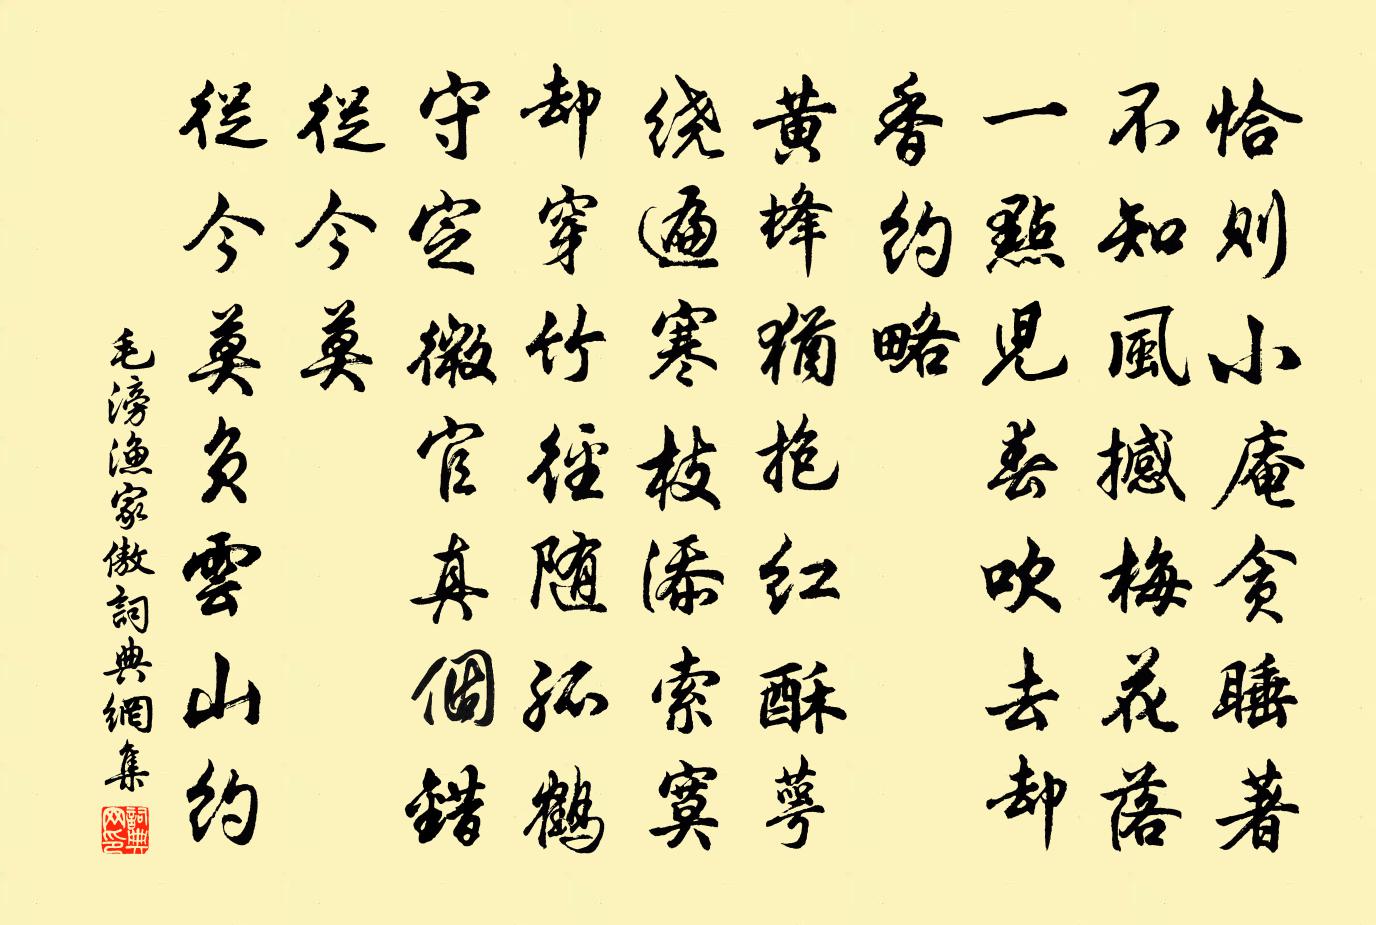 恰则小庵贪睡著
不知風撼梅花落
一點兒春吹去却
香約略
黄蜂猶抱红酥萼
绕遍寒枝添索寞
却穿竹徑随孤鶴
守定微官真個錯
從今莫
從今莫负雲山約
毛滂漁家傲詞典網集
詞典
网印